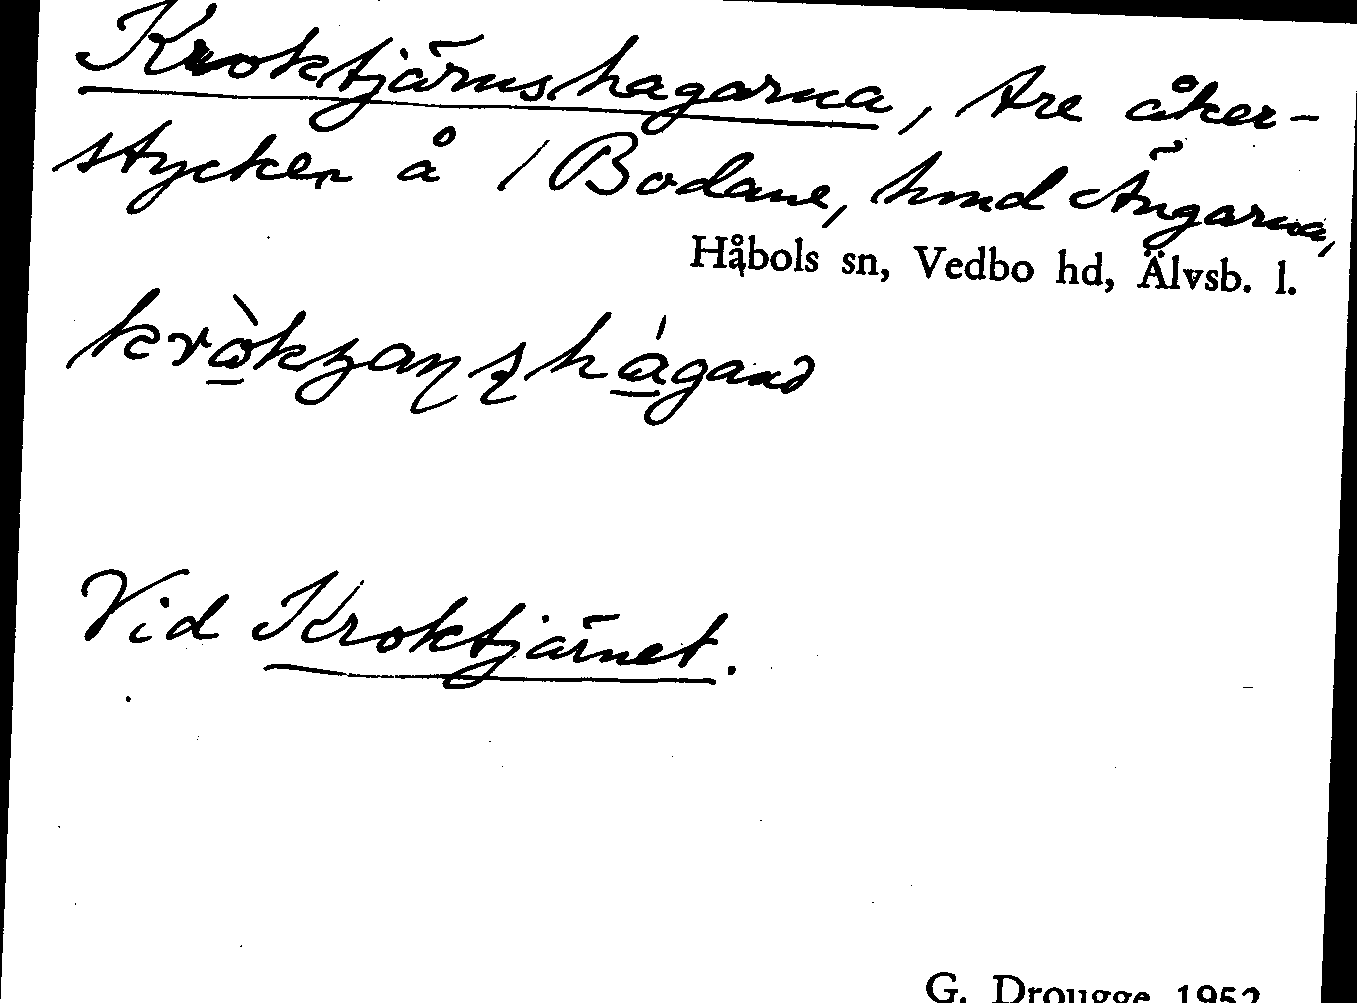 Kroktjärnshagarna, tre åker-
stycken å 1 Bodane, hmd Ängarna,
Håbols sn, Vedbo hd, Älvsb. l.
Vid Kroktjärnet.
G. Drougge 1952